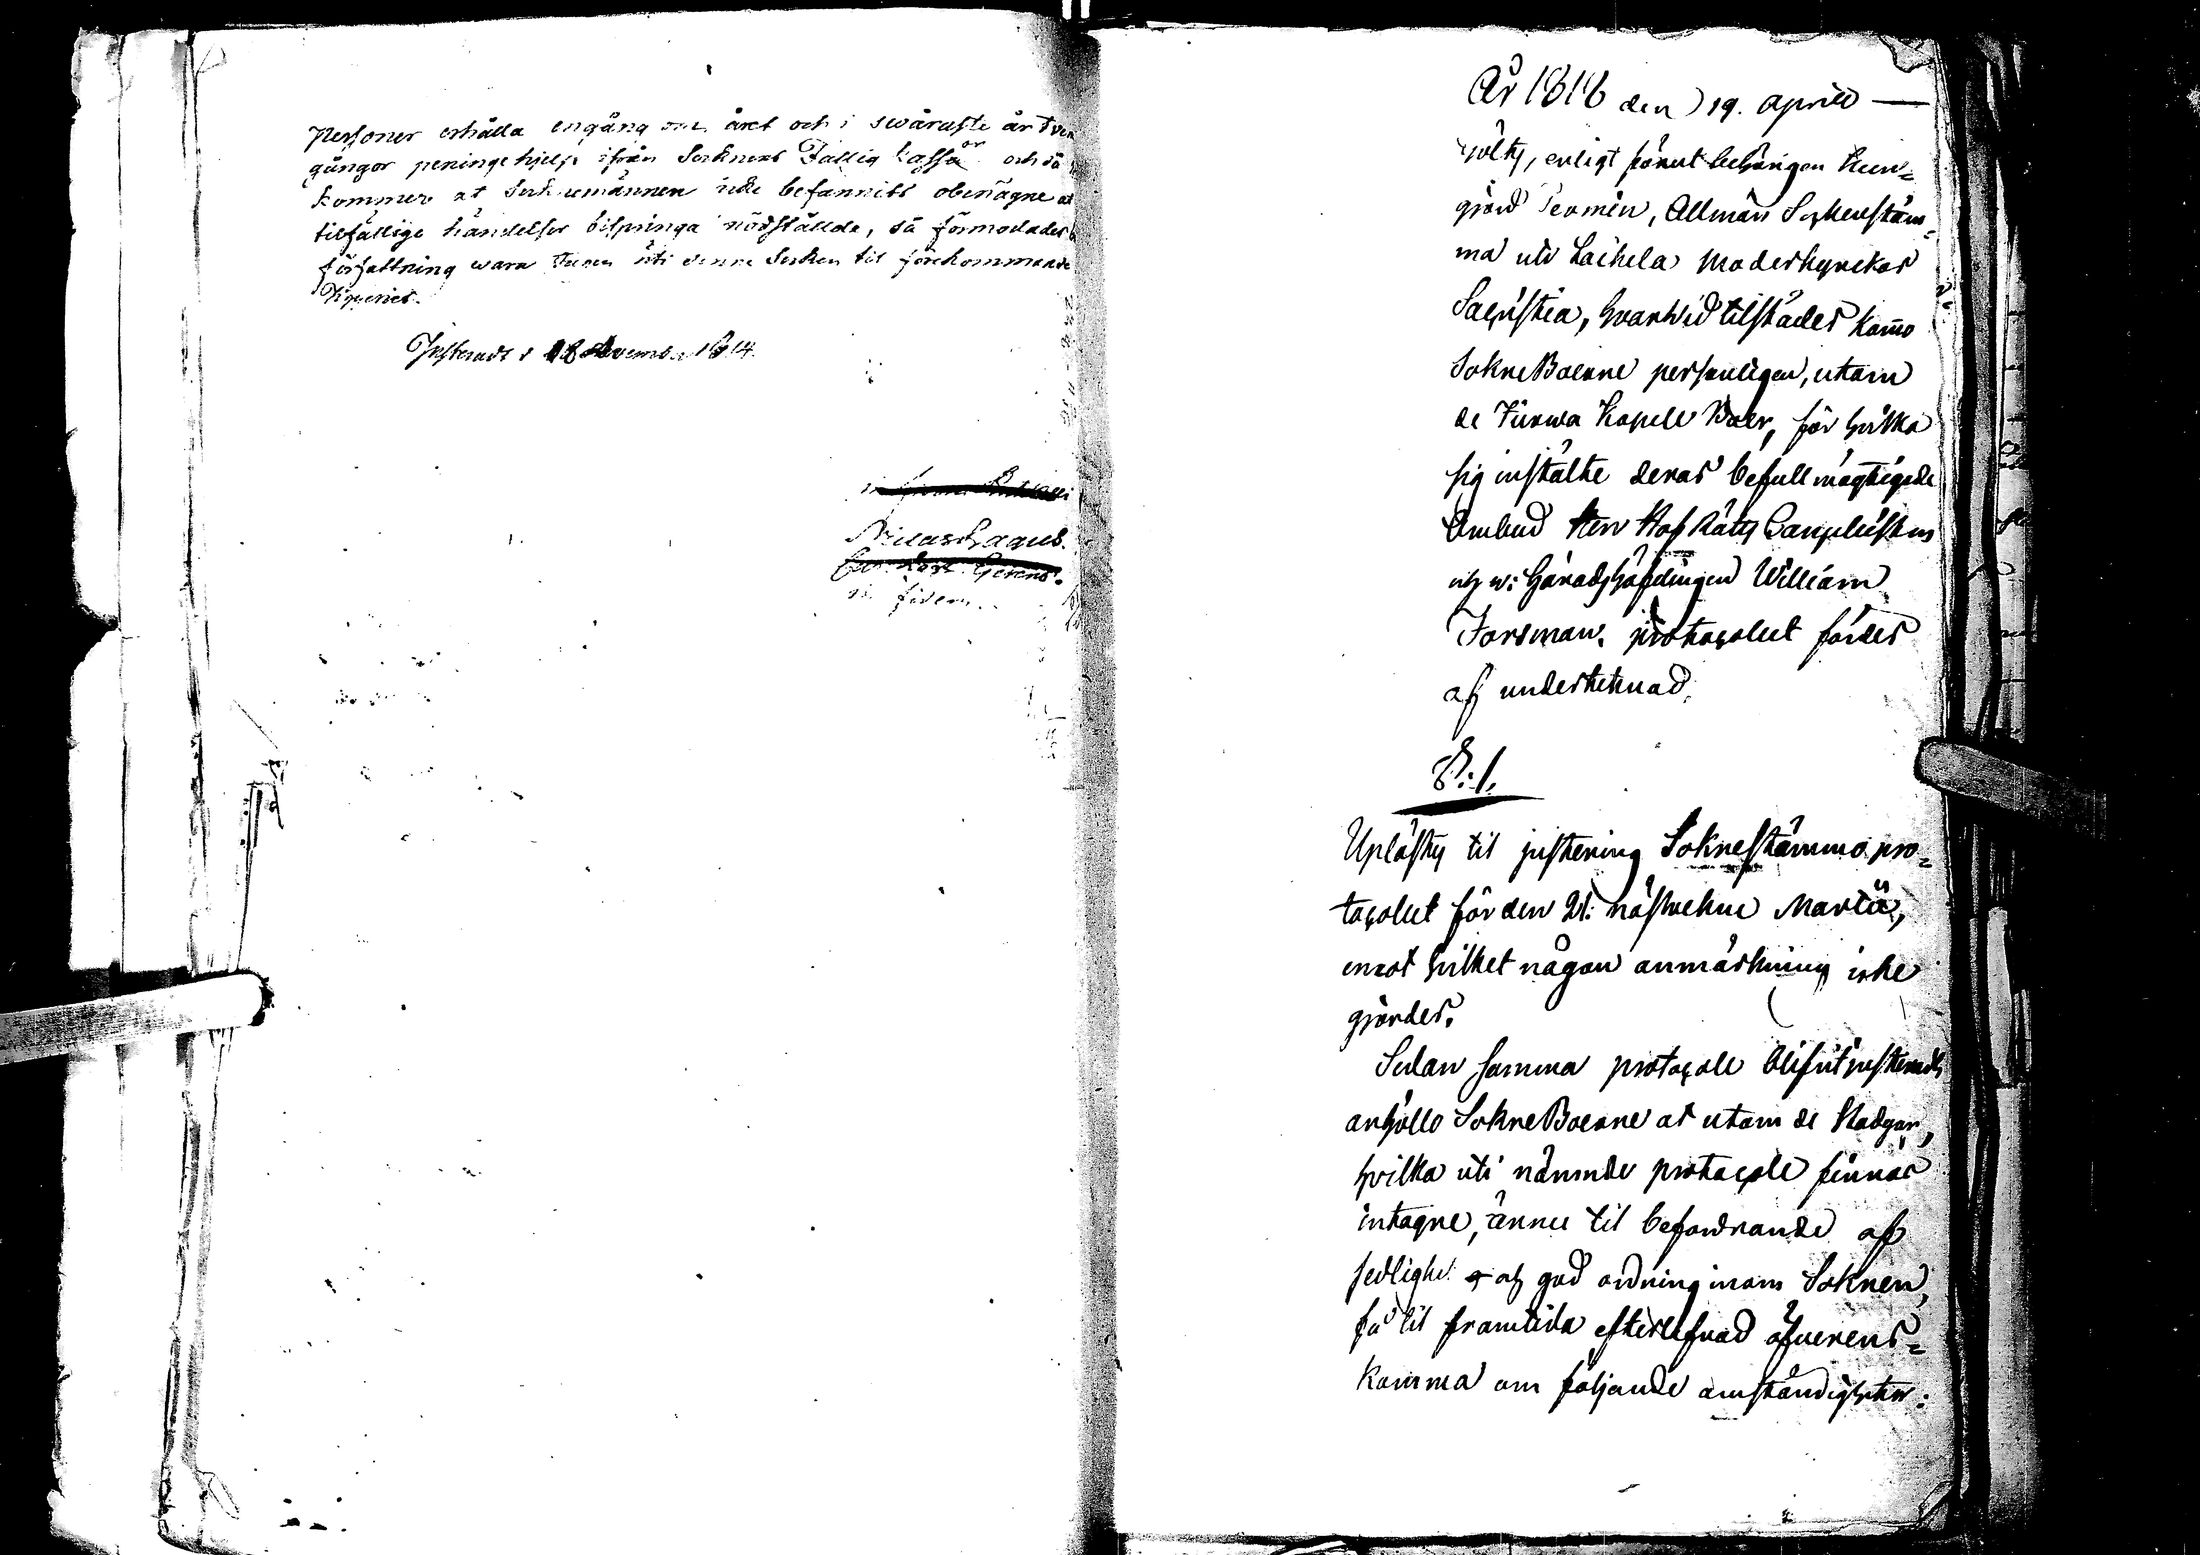 Personer erhålla engång om året och i swåraste år tven
gångor peninge hjelp ifrån Soknens Fattig Cassa och så
kommer at Soknemännen icke befannits obenägne at
tilfällige händelser bispringa nödstälde, så förmodades
författning wara tagen uti denne Soken til förekommande
Justeradt d 18 November 1814.
Nicuas Lagus.
in fidem.
År 1818 den 19. Aprill —
hölts, enligt förut behörigen kun=
gjord Termin, Allmän Sockenstäm=
ma uti Laihela Moderkyrckas
Sacristia, hvarwid tilstädes kommo
SokneBoerne personligen, utom
de Jurwa Kapell Boer, för hvilka
sig instälte deras befullmägtigade
Ombud Herr HofRätts Canzlisten
och w: Häradshöfdingen William
Forsman. protocollet fördes
af undertecknad.
§:1.
Uplästes til justering Soknestämmo pro=
tocollet för den 21. nästvekne Martii,
emot hvilket någon anmärkning icke
gjordes.
Sedan samma protocoll blifvit justeradt,
anhöllo SokneBoerne at utom de Stadgar,
hvilka uti nämnde protocoll finnas
intagne, ännu til befordrande af
sedlighet och god ordning inom Soknen,
få til framtida efterlefnad öfverens=
komma om följande omständigheter: